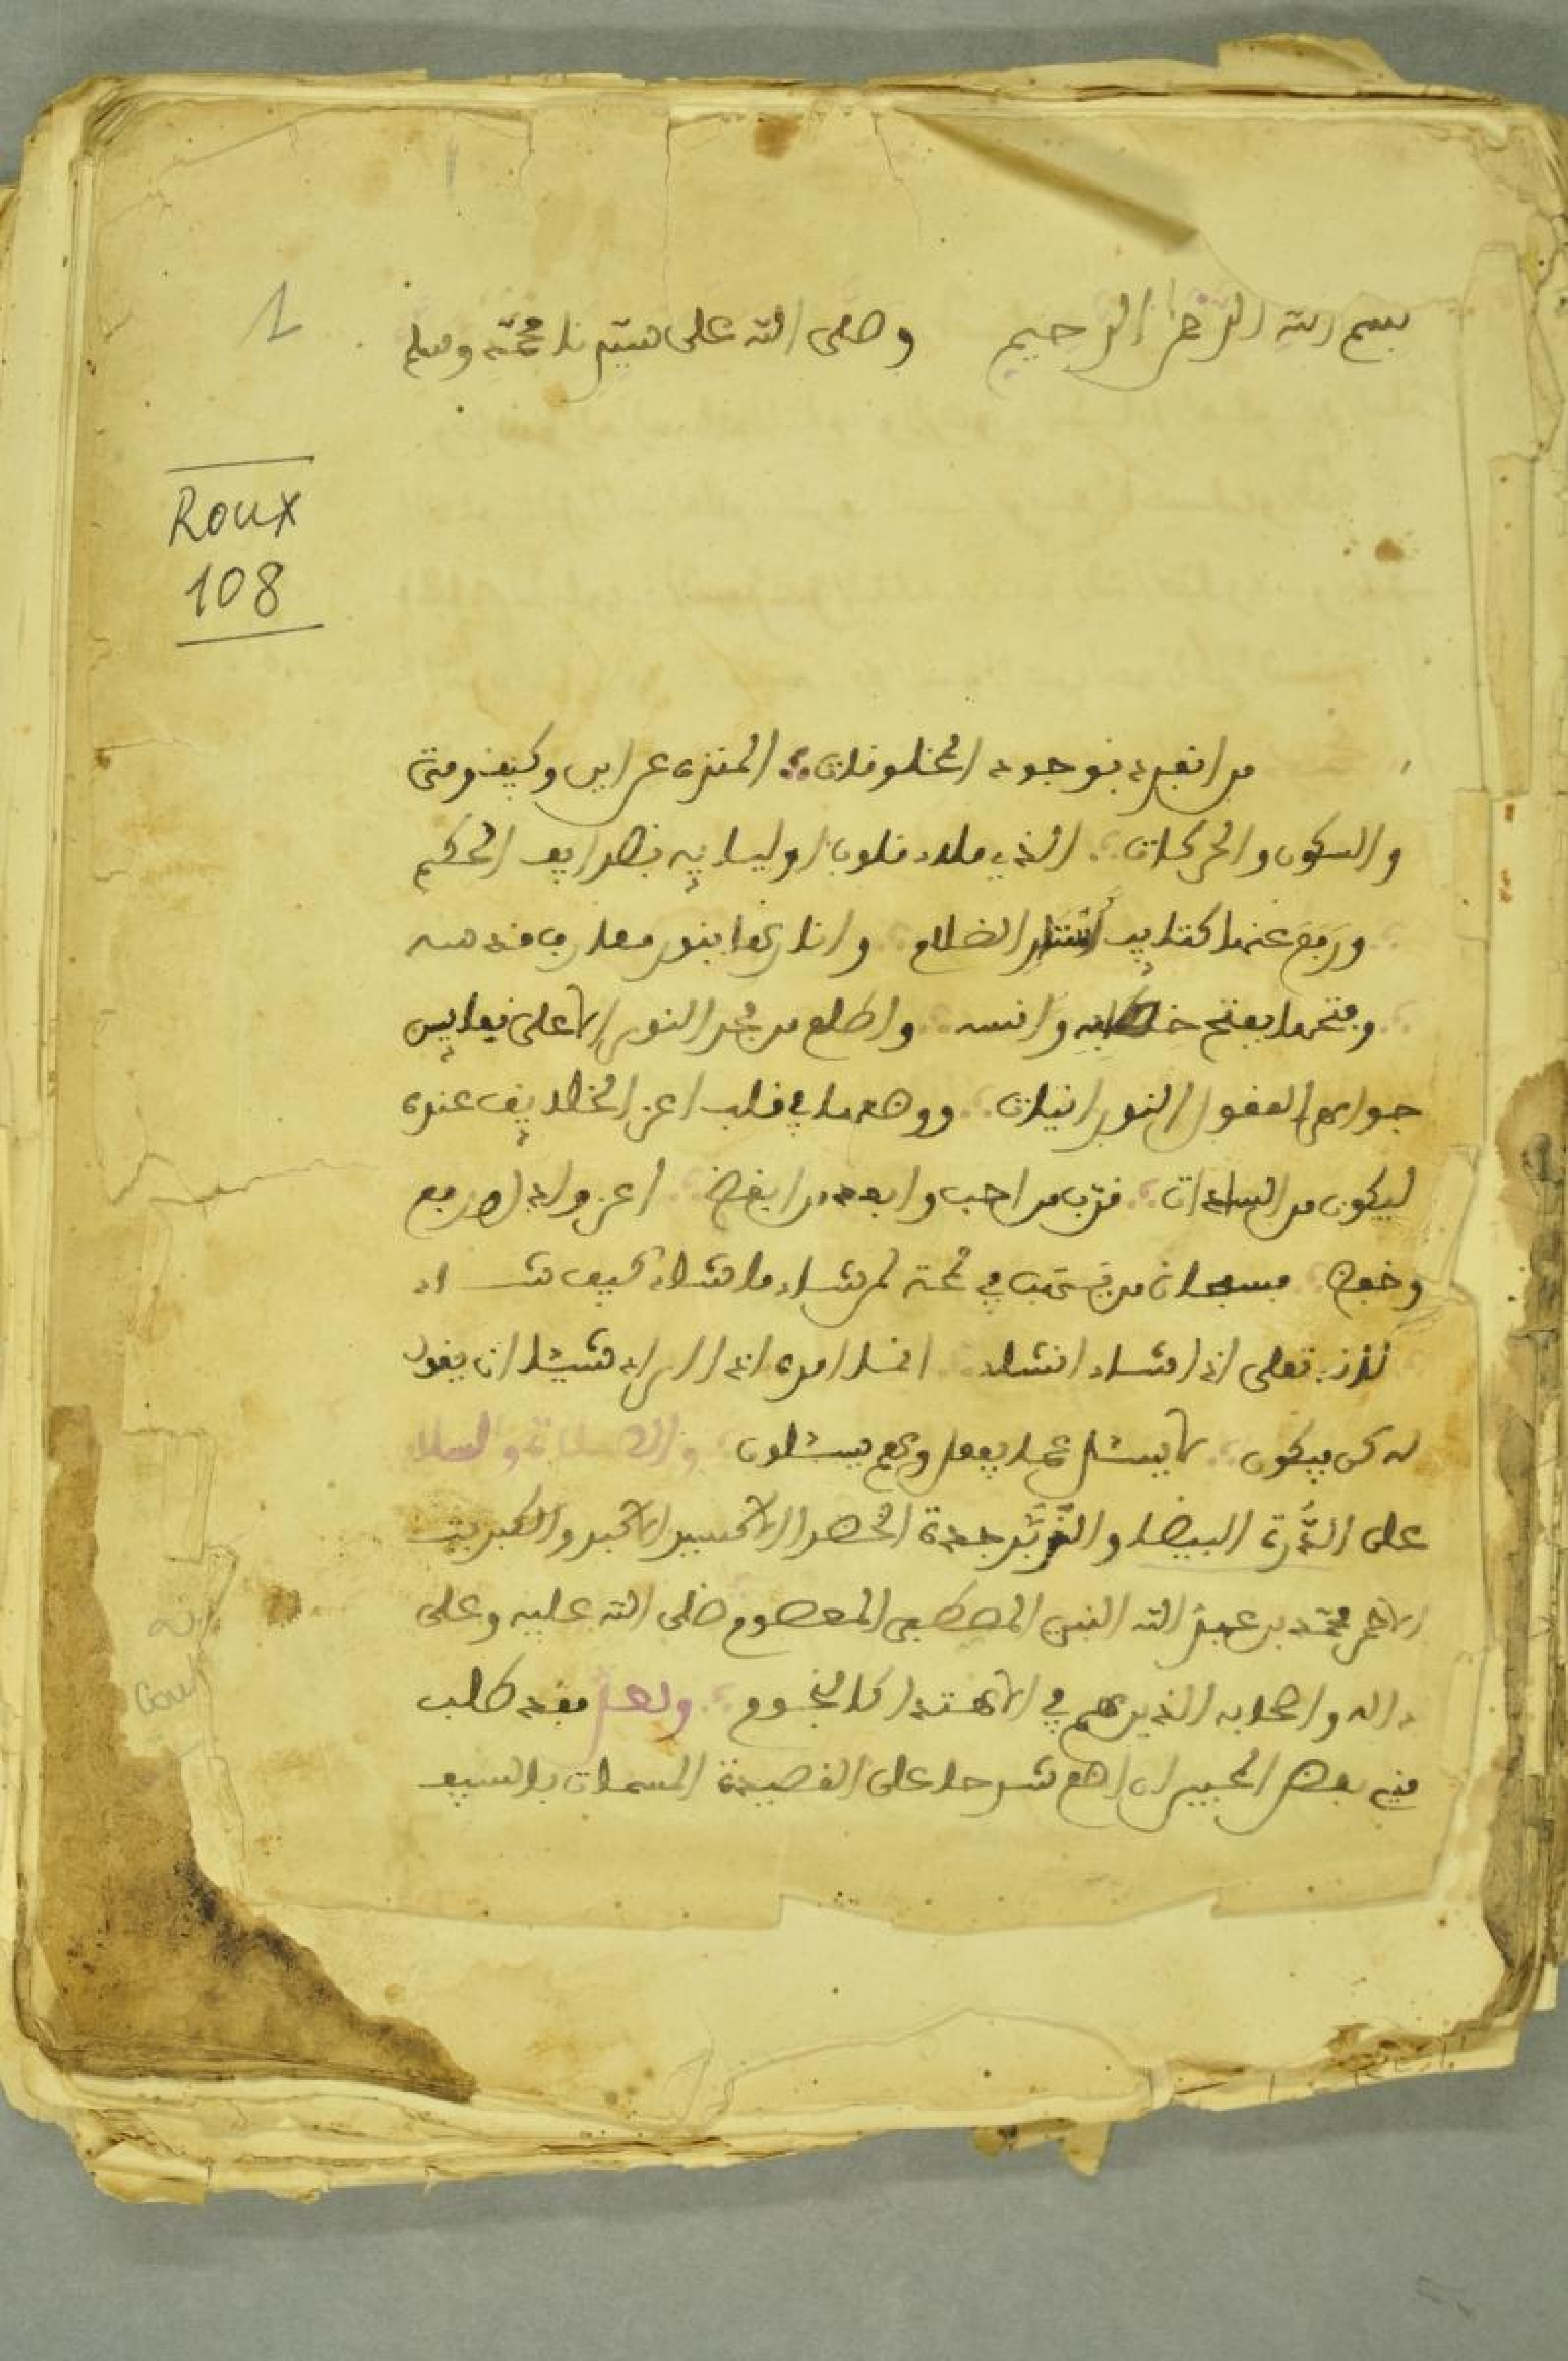 1
بسم الله الرحمن الرحيم وصلى الله على سيدنا محمد وسلم
Roux
108
من انفرد بوجود المخلوقات المنزه عن اين وكيف ومتى
والسكون والحركات الذي ملاء قلوب اوليايه
ورفع عنها استار الظلام وانارها بنور معارف قدسه
وفتحها بفتح وانسه واطلع من بحر النور الاعلى نفايس
جواهر العقول النورانيات ووضعها في قلب اعز الخلايق عنده
ليكون من السادات فقرب من احب وابعد من ابغض اعز واذل رفع
وخفض فسبحان من لمن شاء ما شاء كيف شاء
لانه تعلى اذا شاء انشاء انما امره اذا اراد شيئا ان يقول
له كن فيكون لا يسئل عما يفعل وهم يسئلون والصلاة والسلا
على الدرة البيضا والزبرجدة الخضرا الاكسير الاكبر والكبريت
الاحمر محمد بن عبد الله النبي المصطفى المعصوم صلى الله عليه وعلى
ءاله واصحابه الذين هم في الاهتدا كالنجوم وبعد فقد طلب
مني بعض المحبين ان اضع شرحا على القصيدة المسمات بالسيف